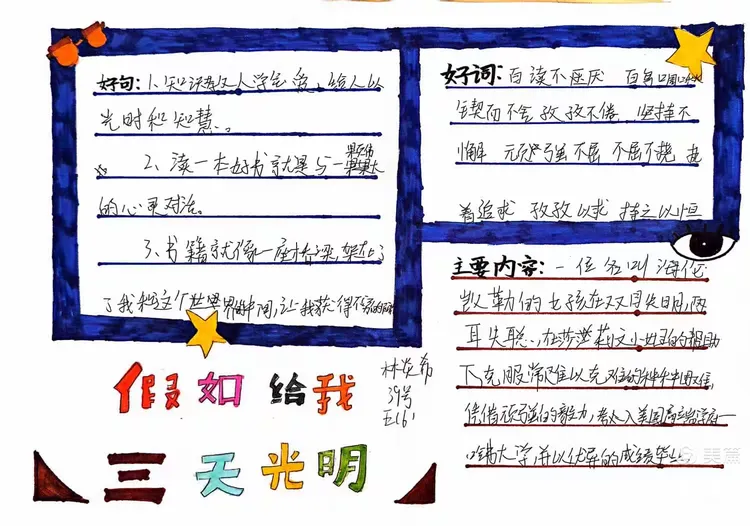 好句：1、知识教人学生爱、给人以
光明和知慧。
2、读一本好书就是与一
的心灵对话。
3、书籍就像一座桥梁,架在了
了我和这个世界的中间,让我获得不
好词：百读不厌
锲而不舍 孜孜不倦 坚持不
懈 顽强不屈 不屈不挠
着追求 孜孜以求 持之以恒
主要内容：一位名叫海伦
凯勒的女孩在双目失明,两
耳失聪、在莎莉文小姐的帮助
下克服常人难以克
凭借顽强的毅力,考入美国高等学府一
哈佛大学,并以优异的成绩毕业
假如给我
三天光明
39号
美篇